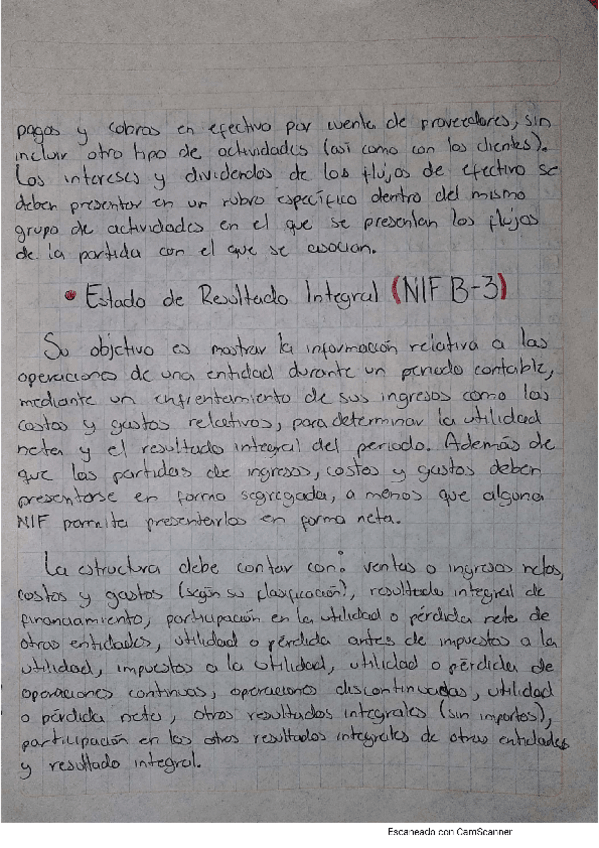 pagos y cobros en efectivo por cuenta de proveedores, sin
incluir otro tipo de actividades (así como con los clientes).
Los intereses y dividendos de los flujos de efectivo se
deben presentar en un rubro específico dentro del mismo
grupo de actividades en el que se presentan los flujos
de la partida con el que se asocian.
• Estado de Resultado Integral (NIF B-3)
Su objetivo es mostrar la información relativa a las
operaciones de una entidad durante un periodo contable,
mediante un enfrentamiento de sus ingresos como los
costos y gastos relativos, para determinar la utilidad
neta y el resultado integral del periodo. Además de
que las partidas de ingresos, costos y gastos deben
presentarse en forma segregada, a menos que alguna
NIF permita presentarlos en forma neta.
La estructura debe contar con: ventas o ingresos netos,
costos y gastos (según su clasificación), resultado integral de
financiamiento, participación en la utilidad o pérdida neta de
otras entidades, utilidad o pérdida antes de impuestos a la
utilidad, impuestos a la utilidad, utilidad o pérdida de
operaciones continuas, operaciones discontinuadas, utilidad
o pérdida neta, otros resultados integrales (sin importos),
participación en los otros resultados integrales de otras entidades
y resultado integral.
Escaneado con CamScanner